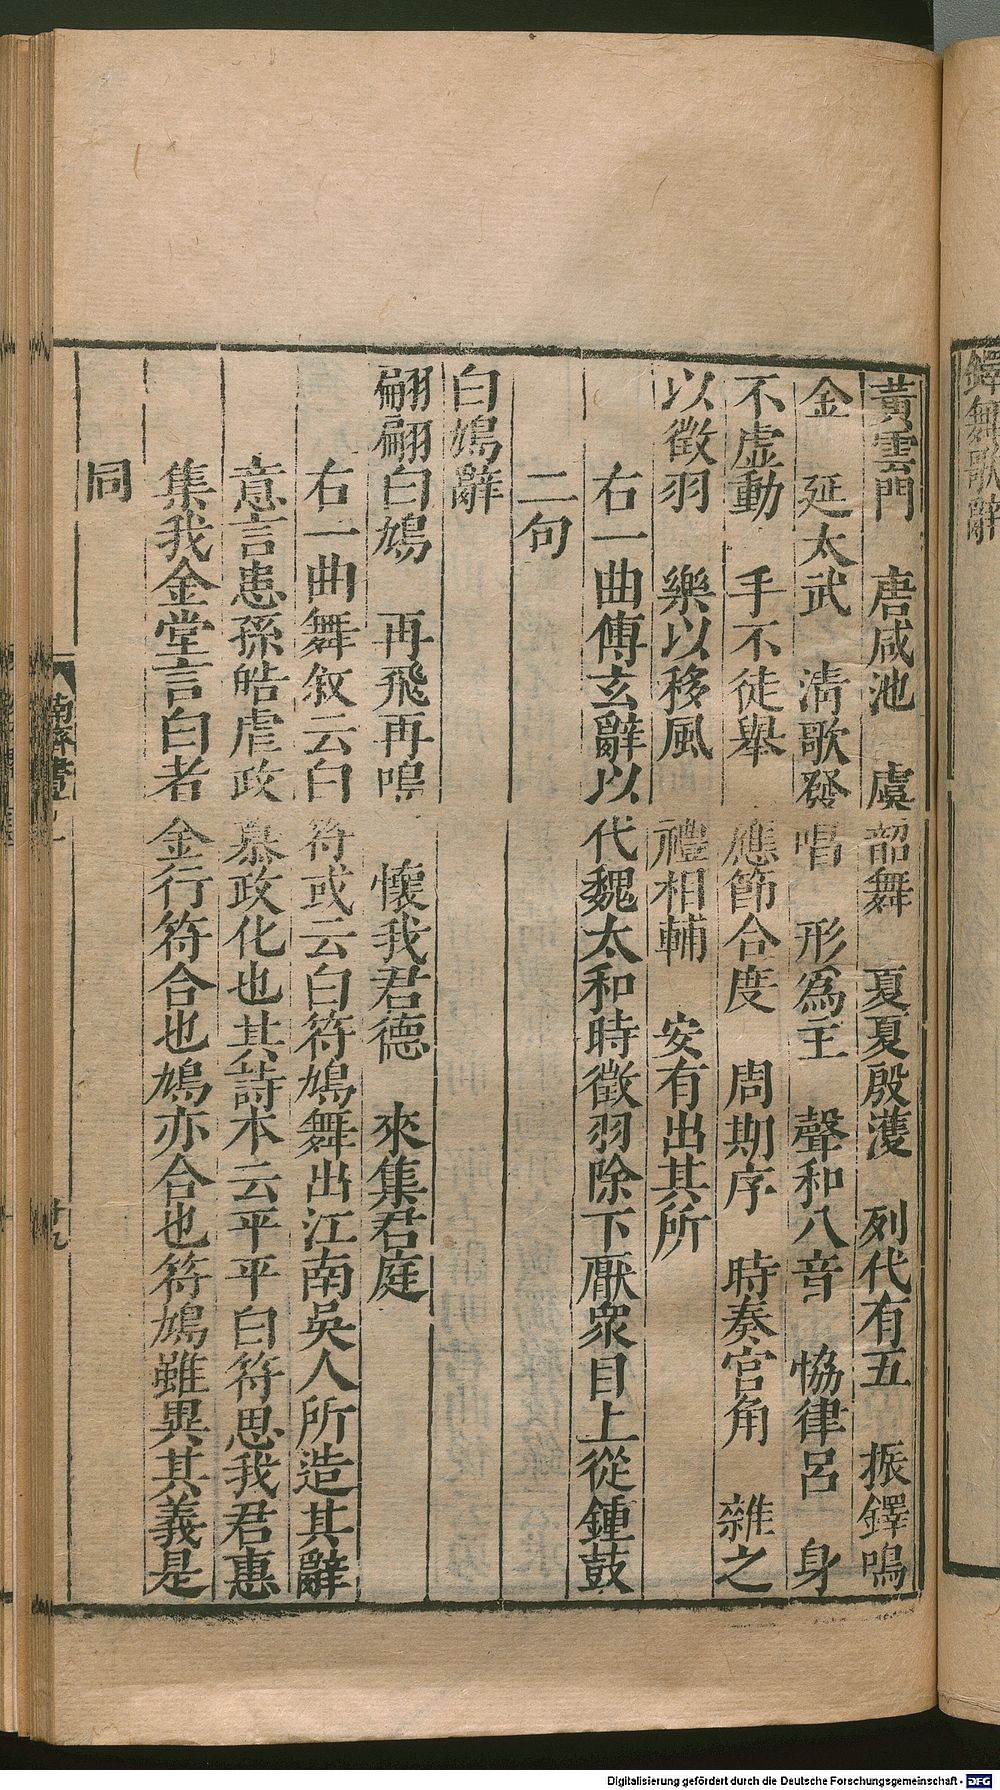 鐸舞歌辭
黃雲門　唐咸池　虞韶舞　夏夏殷濩　列代有五　振鐸鳴
金　延太武　清歌發唱　形爲主　聲和八音　恊律呂　身
不虛動　手不徒舉　應節合度　周期序　時奏宮角　雜之
以徵羽　樂以移風　禮相輔　安有出其所
右一曲傅玄辭以代魏太和時徵羽除下厭衆目上從鍾鼓
二句
白鳩辭
翩翩白鳩　再飛再鳴　懷我君德　來集君庭
右一曲舞敘云白符或云白符鳩舞出江南吳人所造其辭
意言患孫皓虐政慕政化也其詩本云平平白符思我君惠
集我金堂言白者金行符合也鳩亦合也符鳩雖異其義是
同
南齊書
廿九
Digitalisierung gefördert durch die Deutsche Forschungsgemeinschaft - DFG